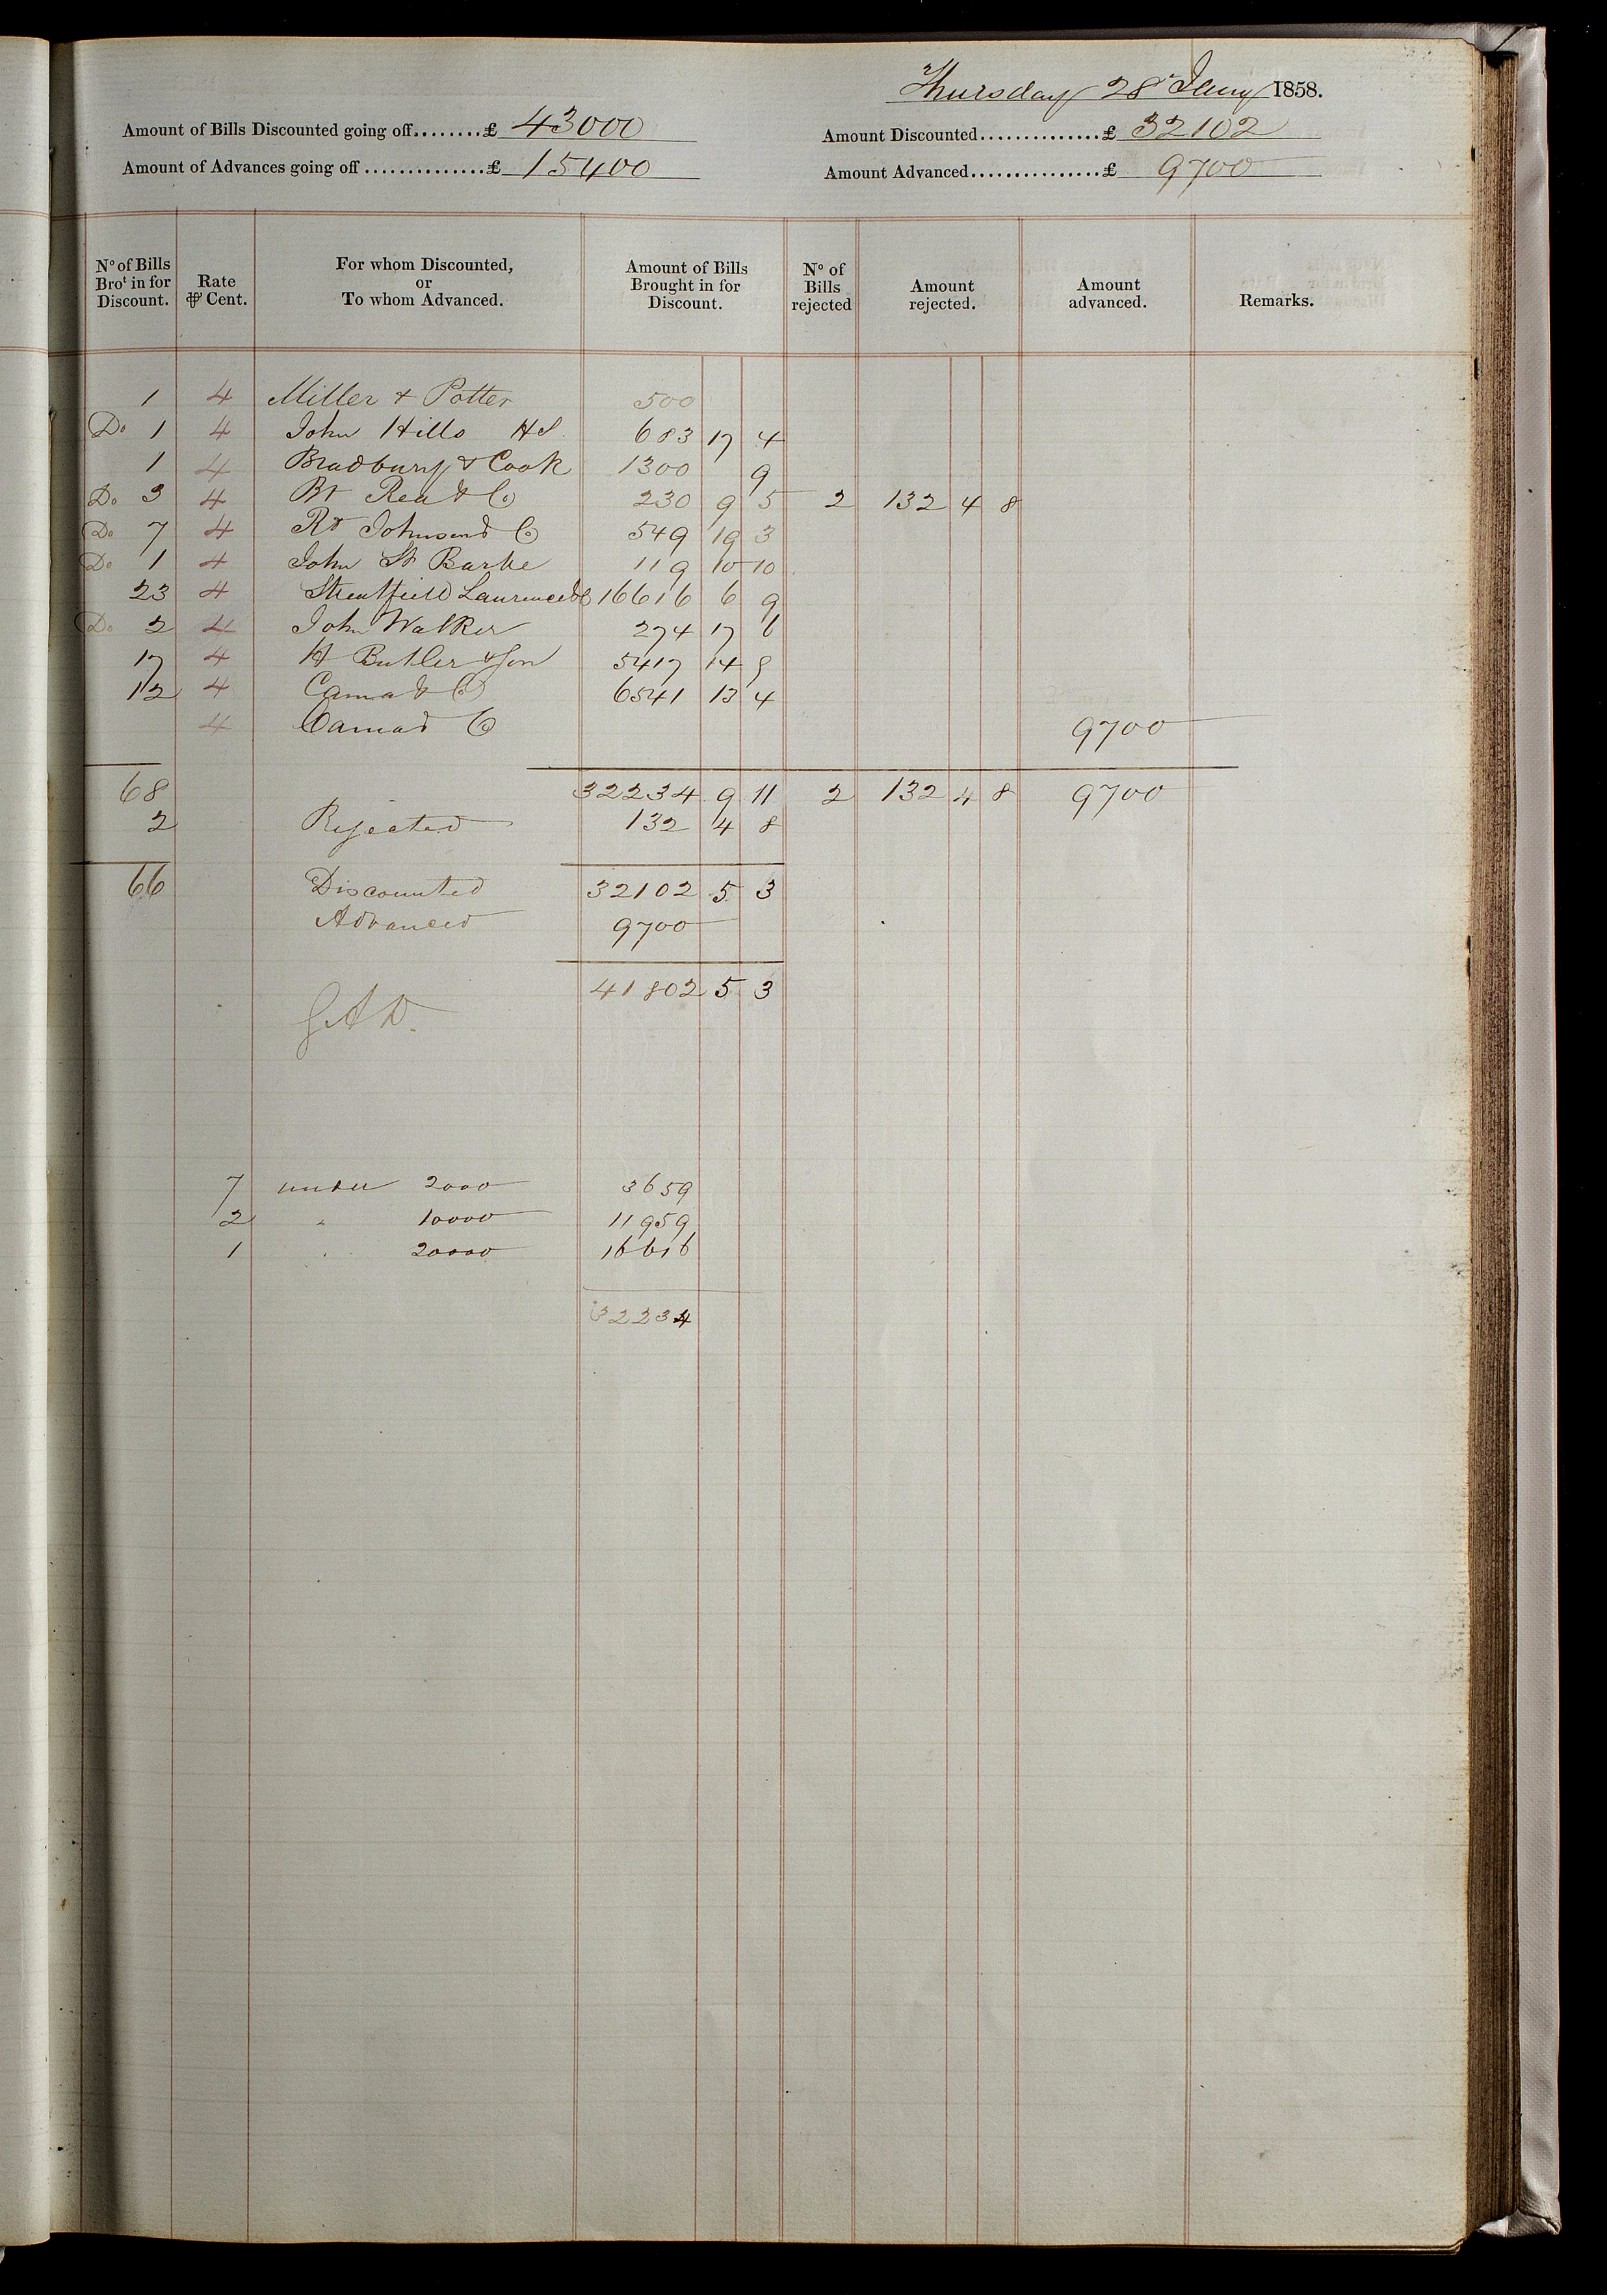 Thursday 28 Jany 1858.
Amount of Bills Discounted going off........£ 43000
Amount Discounted..............£ 32102
Amount of Advances going off..............£ 15400
Amount Advanced................£ 9700
No of Bills Brot in for Discount. Rate ⅌ Cent. For whom Discounted, or To whom Advanced. Amount of Bills Brought in for Discount. No of Bills rejected Amount rejected. Amount advanced. Remarks.
1 4 Miller & Potter 500
Do 1 4 John Hills 683 17 4
1 4 Bradbury & Cook 1300 9
Do 3 4 Rea & Co 230 9 5 2 132 4 8
Do 7 4 Rd Johnson & Co 549 19 3
Do 1 4 John St Barbe 119 10 10
23 4 Streatfield Laurence & Co 16616 6 9
Do 2 4 John Walker 274 17 6
17 4 H Butler & Son 5417 14 9
12 4 Cama & Co 6541 13 4
4 Cama & Co 9700
68 32234 9 11 2 132 4 8 9700
2 Rejected 132 4 8
66 Discounted 32102 5 3
Advanced 9700
41802 5 3
7 under 2000 3659
2 " 10000 11959
1 " 20000 16616
32234